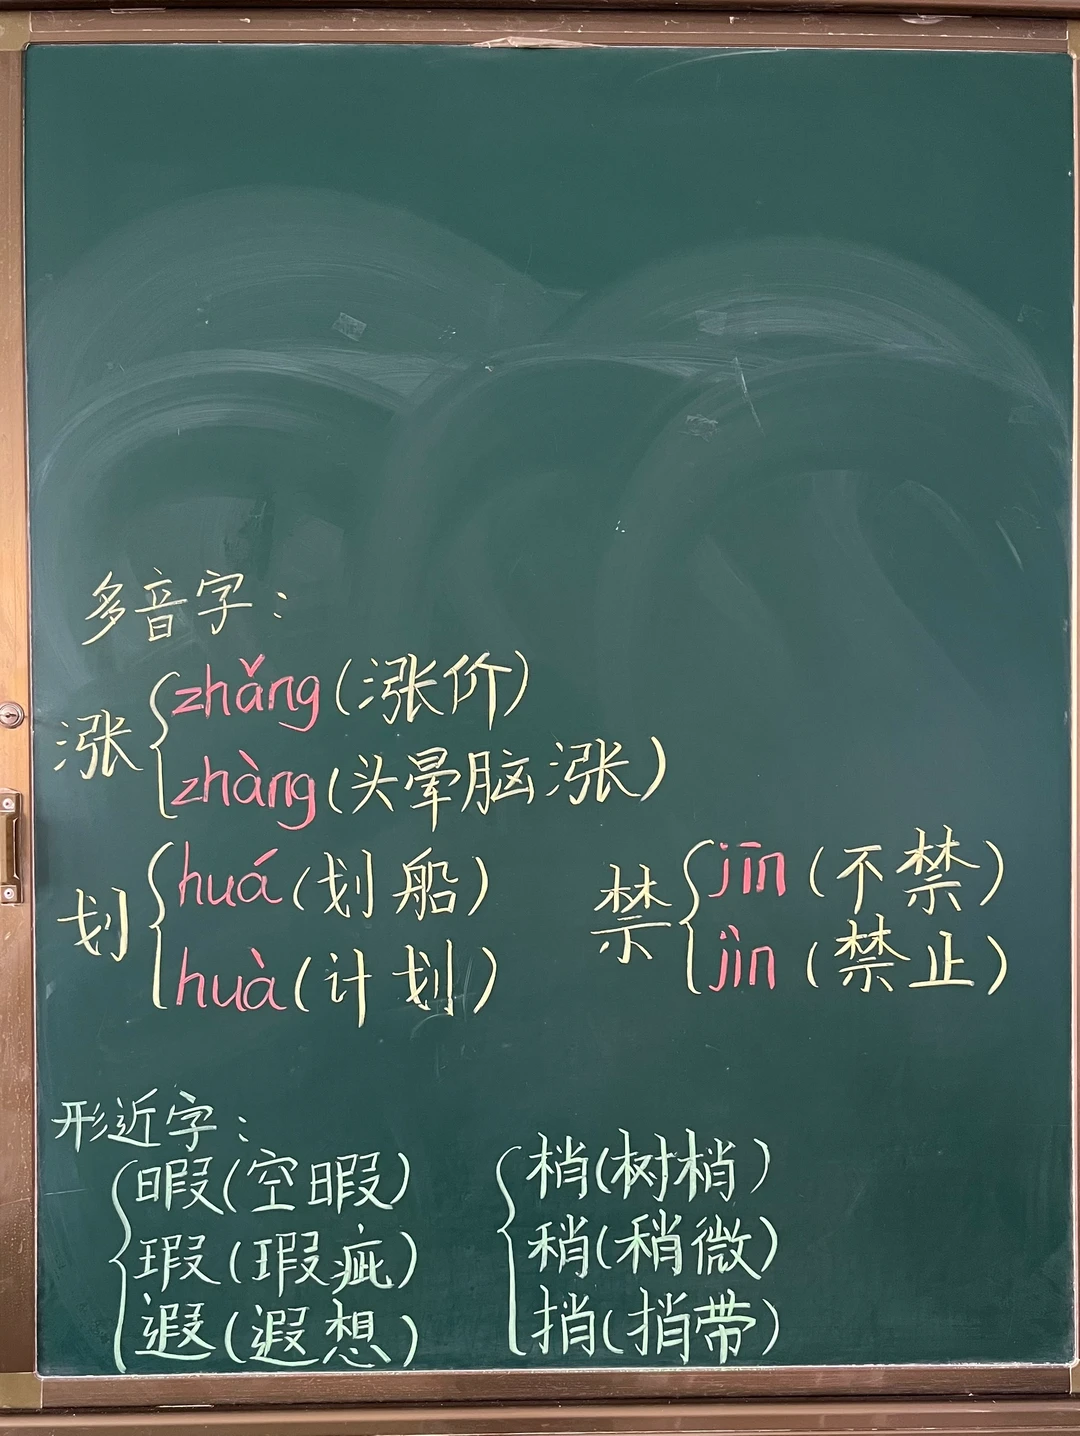 多音字：
涨 zhǎng（涨价）
zhàng（头晕脑涨）
划 huá（划船）
huà（计划）
禁 jīn（不禁）
jìn（禁止）
形近字：
暇（空暇）
瑕（瑕疵）
遐（遐想）
梢（树梢）
稍（稍微）
捎（捎带）